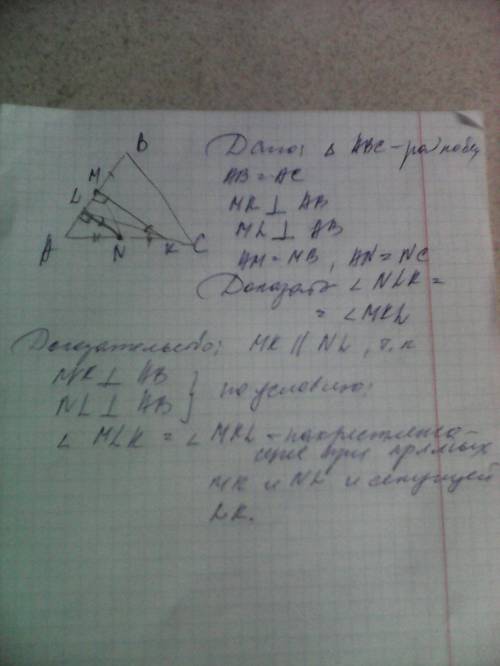 B
M
L
A
N
K
C
Дано: Δ ABC - равнобед
AB = AC
MK ⊥ AB
ML ⊥ AB
AM = MB, AN = NC
Доказать ∠ NLK =
= ∠ MKL
Доказательство: MK || NL, т.к
MK ⊥ AB
NL ⊥ AB } по условию;
∠ MLK = ∠ MKL - накрестлежа-
щие при прямых
MK и NL и секущей
LK.